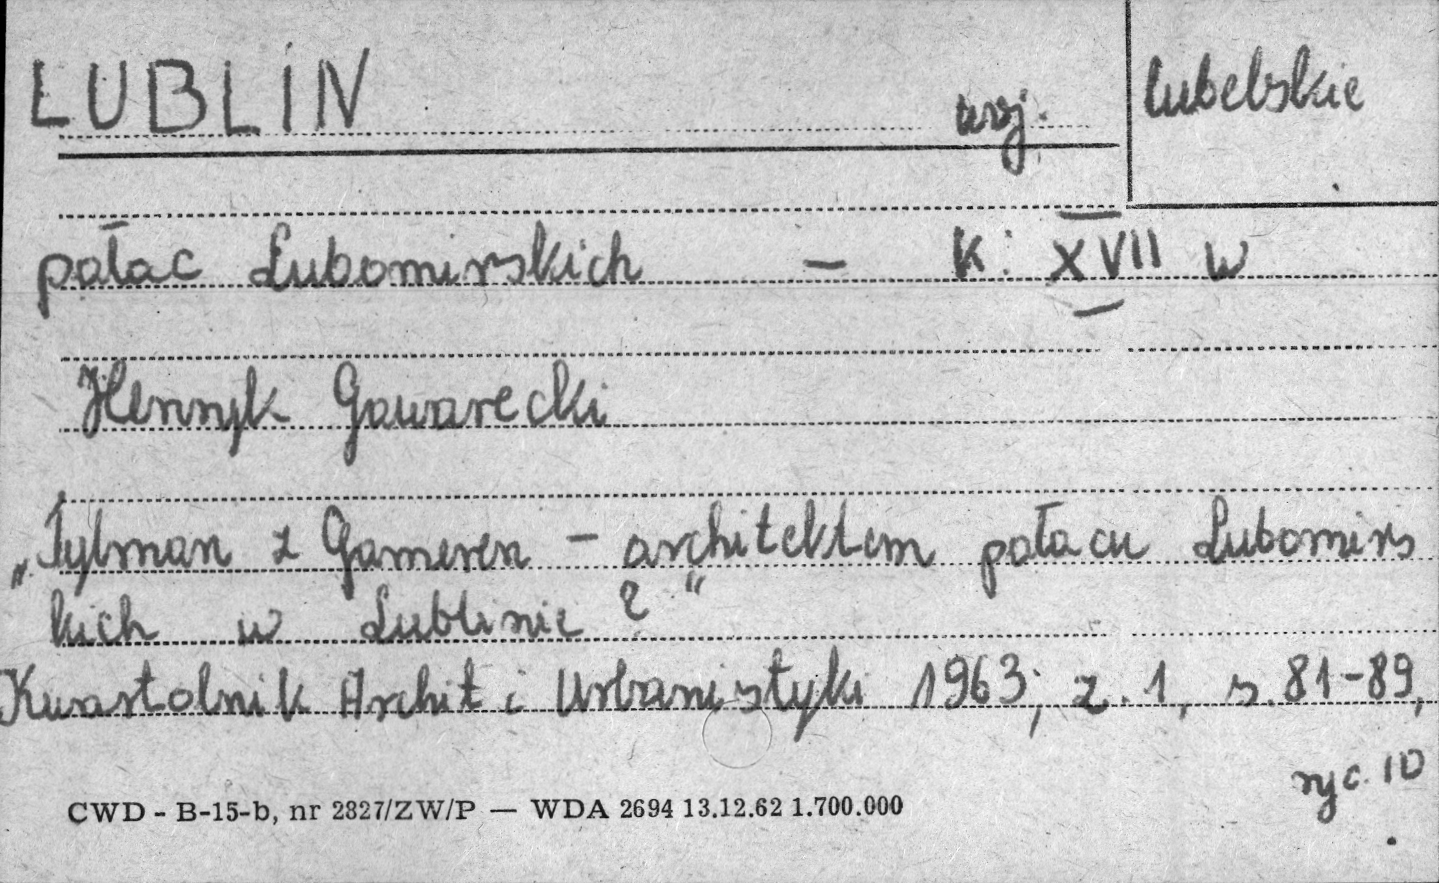 LUBLIN woj. lubelskie
pałac Lubomirskich — K. XVII w
Henryk Gawarecki
„Tylman z Gameren – architektem pałacu Lubomirs
kich w Lublinie?“
Kwartalnik Archit i Urbanistyki 1963; z. 1, s. 81-89,
ryc. 10
CWD - B-15-b, nr 2827/ZW/P — WDA 2694 13.12.62 1.700.000